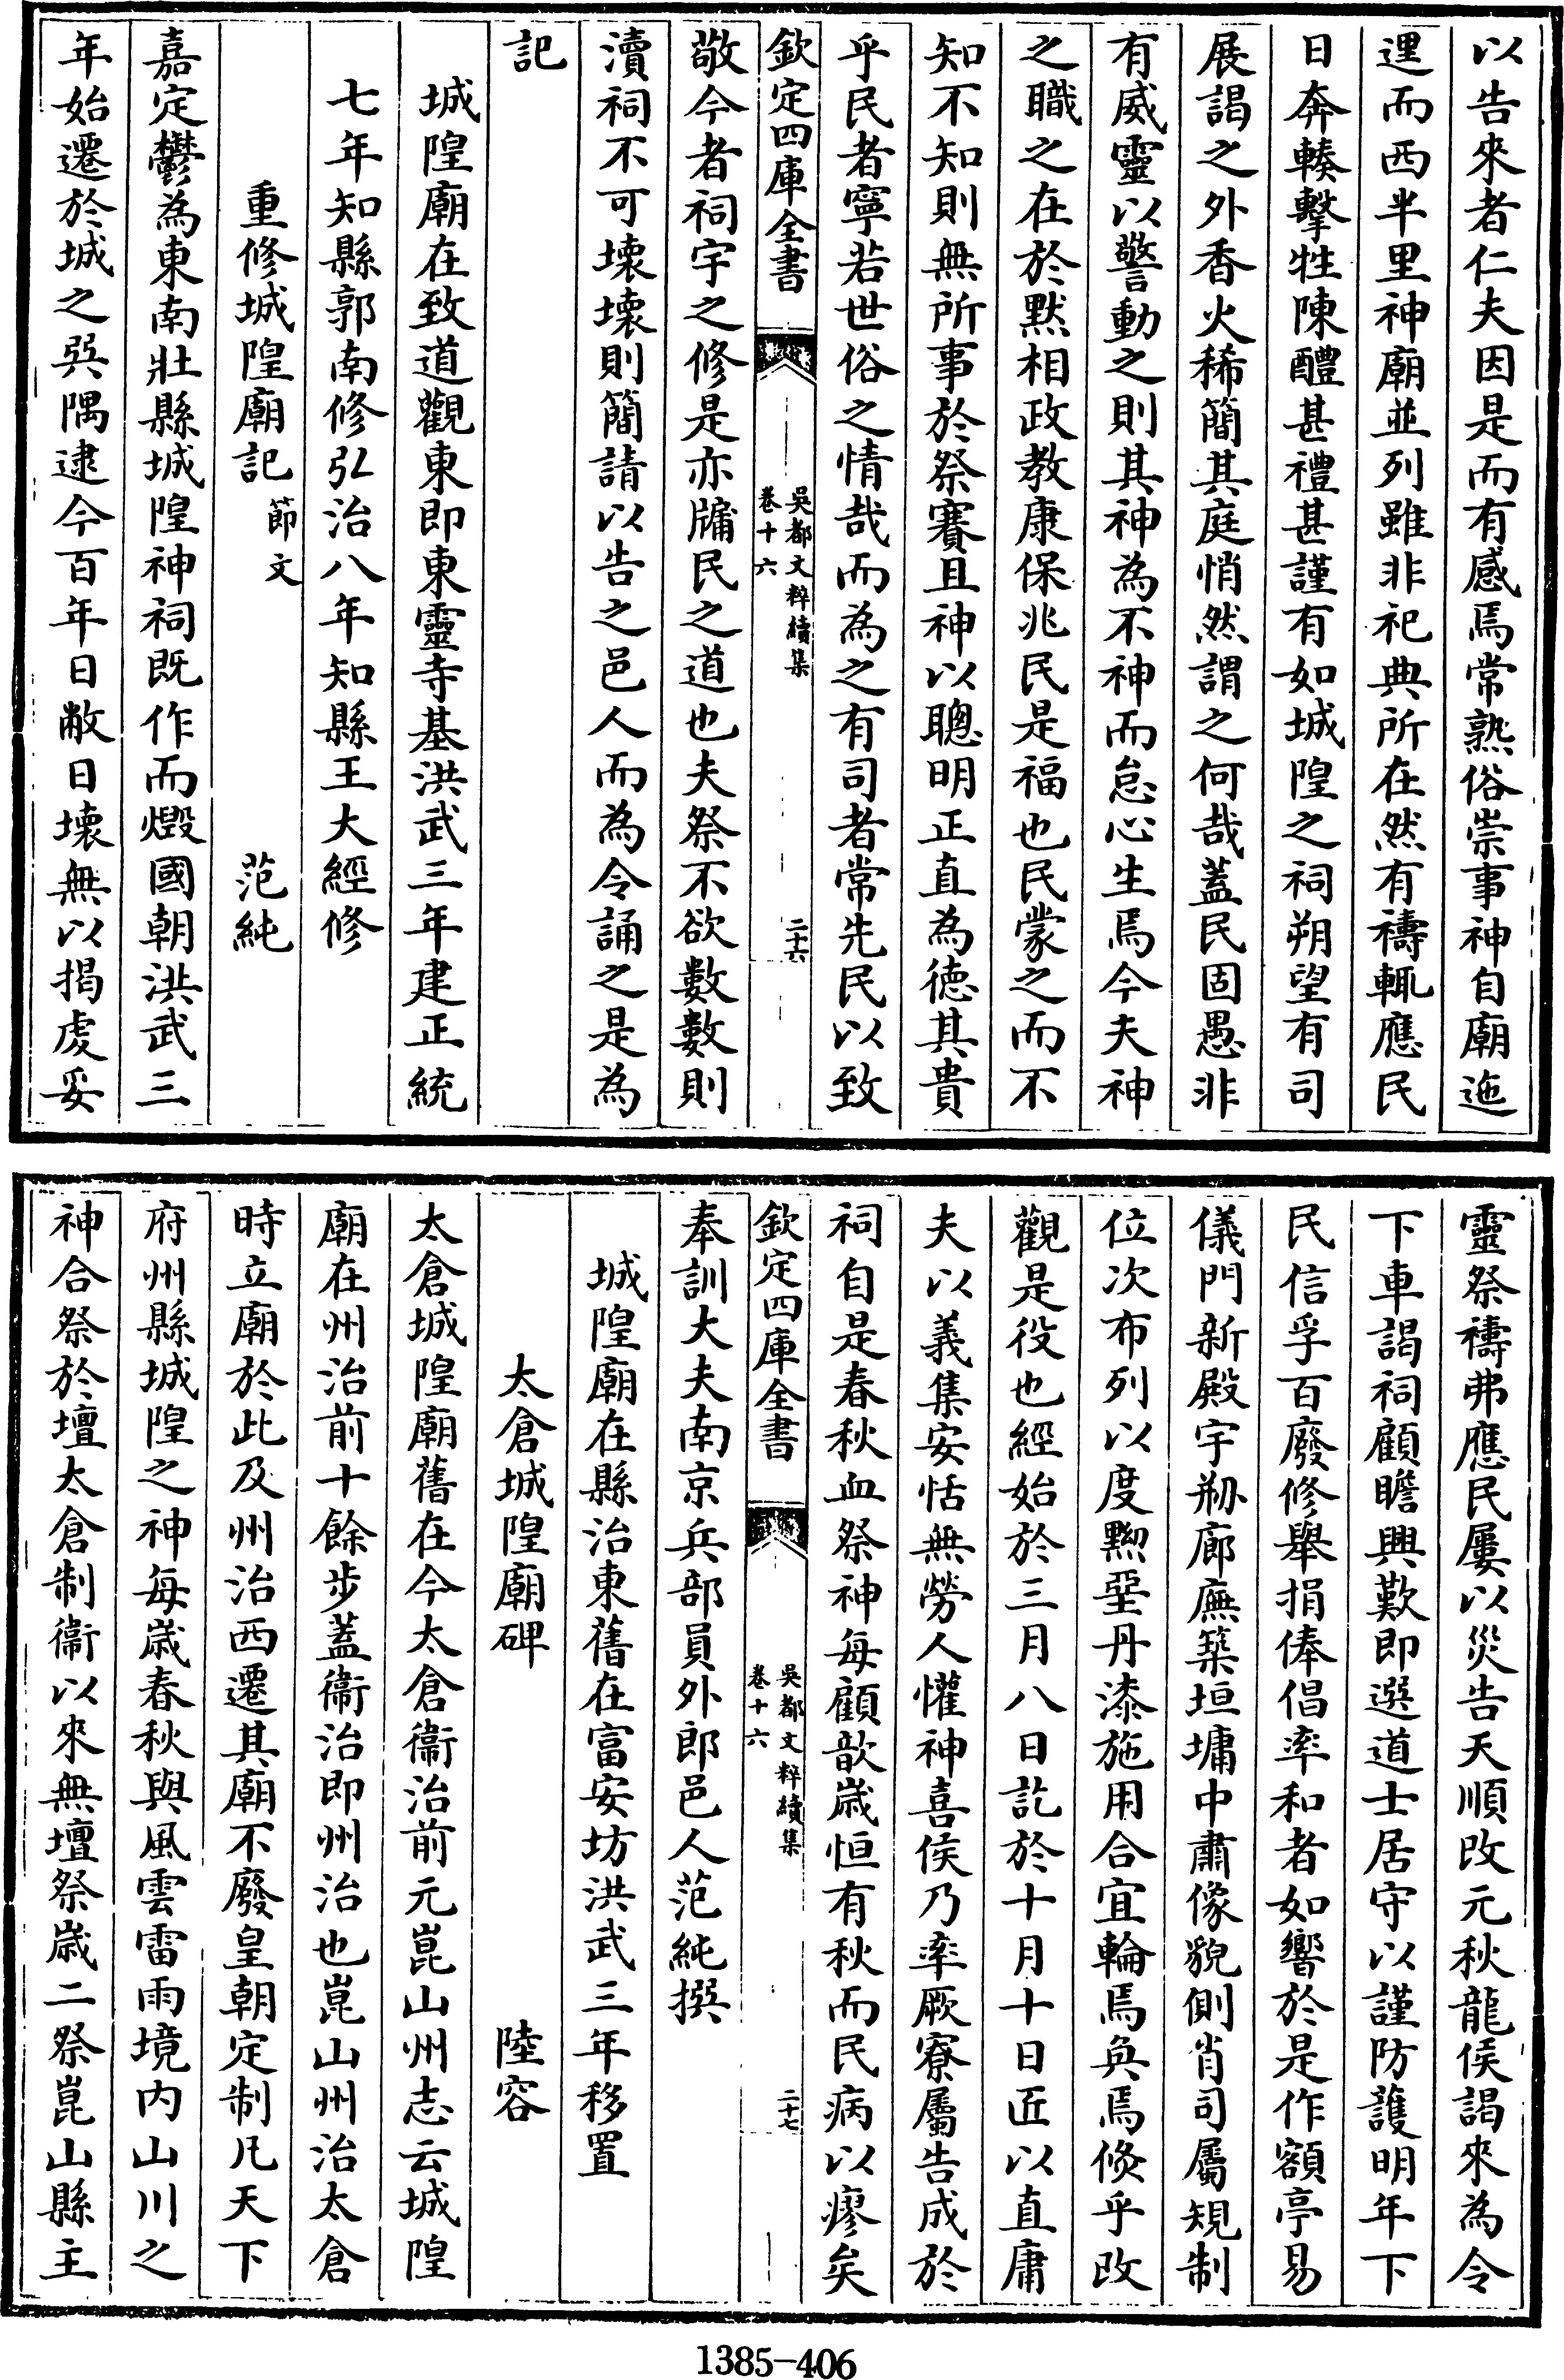 以告來者仁夫因是而有感焉常熟俗崇事神自廟迤
逕而西半里神廟並列雖非祀典所在然有禱輒應民
日奔轃擊牲陳醴甚禮甚謹有如城隍之祠朔望有司
展謁之外香火稀簡其庭悄然謂之何哉蓋民固愚非
有威靈以警動之則其神為不神而怠心生焉今夫神
之職之在於默相政教康保兆民是福也民蒙之而不
知不知則無所事於祭賽且神以聰明正直為德其貴
乎民者寧若世俗之情哉而為之有司者常先民以致
欽定四庫全書
吳都文粹續集
卷十六
二十六
敬今者祠宇之修是亦牖民之道也夫祭不欲數數則
瀆祠不可壞壞則簡請以告之邑人而為令誦之是為
記
城隍廟在致道觀東即東靈寺基洪武三年建正統
七年知縣郭南修弘治八年知縣王大經修
重修城隍廟記節文 范純
嘉定鬱為東南壯縣城隍神祠既作而燬國朝洪武三
年始遷於城之巽隅逮今百年日敝日壞無以揭虔妥
靈祭禱弗應民屢以災告天順改元秋龍侯謁來為令
下車謁祠顧瞻興歎即選道士居守以謹防護明年下
民信孚百廢修舉捐俸倡率和者如響於是作額亭易
儀門新殿宇剏廊廡築垣墉中肅像貌側肖司屬規制
位次布列以度黝堊丹漆施用合宜輪焉奐焉倐乎改
觀是役也經始於三月八日訖於十月十日匠以直庸
夫以義集安恬無勞人懽神喜侯乃率厥寮屬告成於
祠自是春秋血祭神每顧歆歲恒有秋而民病以瘳矣
欽定四庫全書
吳都文粹續集
卷十六
二十七
奉訓大夫南京兵部員外郎邑人范純撰
城隍廟在縣治東舊在富安坊洪武三年移置
太倉城隍廟碑 陸容
太倉城隍廟舊在今太倉衞治前元崑山州志云城隍
廟在州治前十餘步蓋衞治即州治也崑山州治太倉
時立廟於此及州治西遷其廟不廢皇朝定制凡天下
府州縣城隍之神每歲春秋與風雲雷雨境内山川之
神合祭於壇太倉制衞以來無壇祭歲二祭崑山縣主
1385-406